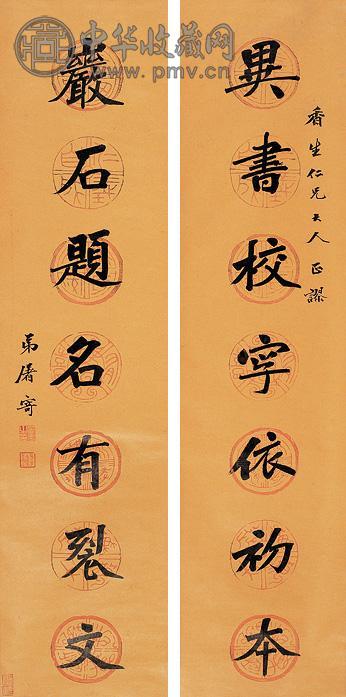 中华收藏网
www.pmv.cn
香生仁兄大人 正謬
異書校字依初本
巖石題名有裂文
弟屠寄